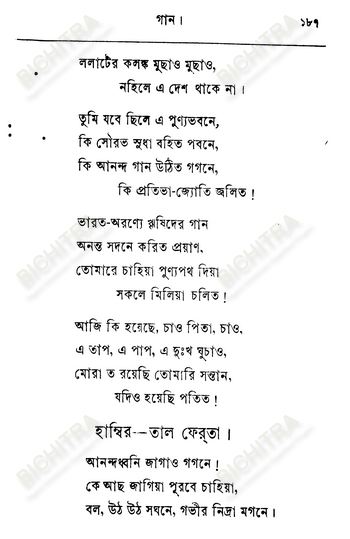 গান।
১৮৭
ললাটের কলঙ্ক মুছাও মুছাও,
নহিলে এ দেশ থাকে না।
তুমি যবে ছিলে এ পুণ্যভবনে,
কি সৌরভ সুধা বহিত পবনে,
কি আনন্দ গান উঠিত গগনে,
কি প্রতিভা-জ্যোতি জলিত!
ভারত-অরণ্যে ঋষিদের গান
অনন্ত সদনে করিত প্রয়াণ,
তোমারে চাহিয়া পুণ্যপথ দিয়া
সকলে মিলিয়া চলিত!
আজি কি হয়েছে, চাও পিতা, চাও,
এ তাপ, এ পাপ, এ দুঃখ ঘুচাও,
মোরা ত রয়েছি তোমারি সন্তান,
যদিও হয়েছি পতিত!
হাম্বির--তাল ফের্‌তা।
আনন্দধ্বনি জাগাও গগনে!
কে আছ জাগিয়া পূরবে চাহিয়া,
বল, উঠ উঠ সঘনে, গভীর নিদ্রা মগনে।
BICHITRA
BICHITRA
BICHITRA
BICHITRA
BICHITRA
BICHITRA